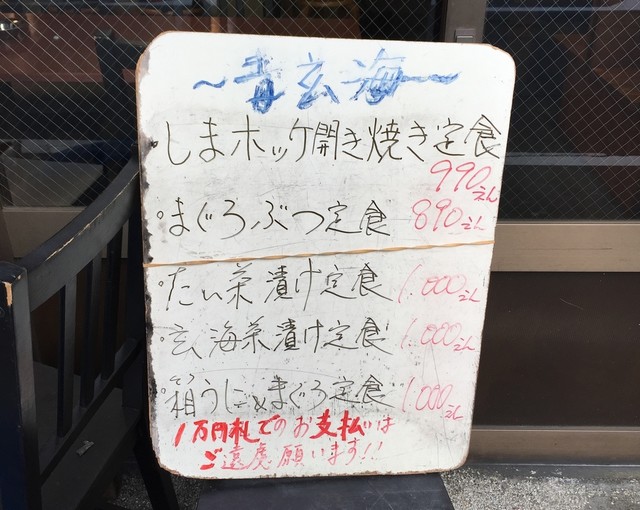 ～青玄海～
・しまホッケ開き焼き定食
990えん
・まぐろぶつ定食 890えん
・たい茶漬け定食 1.000えん
・玄海茶漬け定食 1.000えん
・箱うに&まぐろ定食 1.000えん
1万円札でのお支払いは
ご遠慮願います!!